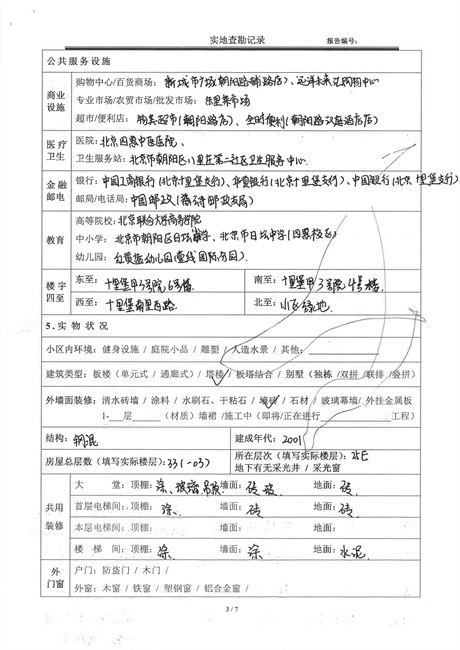 实地查勘记录 报告编号:
公共服务设施
商业设施
购物中心/百货商场: 新城市广场(朝阳路辅路店)、远洋未来汇购物中心
专业市场/农贸市场/批发市场: 菜市场
超市/便利店: 物美超市(朝阳路店)、全时便利(朝阳路汉庭酒店店)
医疗卫生
医院: 北京四惠中医医院、
卫生服务站: 北京市朝阳区八里庄第二社区卫生服务中心.
金融邮电
银行: 中国工商银行(北京十里堡支行)、华夏银行(北京十里堡支行)、中国银行(北京十里堡支行)
邮局/电话局: 中国邮政(邮政支局)
教育
高等院校: 北京联合大学商务学院
中小学: 北京市朝阳区白坊小学、北京市日坛中学(四惠校区)
幼儿园: 红黄蓝幼儿园(国际分园).
楼宇四至
东至: 十里堡甲3号院6号楼 南至: 十里堡甲3号院4号楼
西至: 十里堡南里西路 北至: 小区绿地
5.实物状况
小区内环境: 健身设施 / 庭院小品 / 雕塑 / 人造水景 / 其他:
建筑类型: 板楼(单元式 / 通廊式)/ 塔楼 / 板塔结合 / 别墅(独栋 /双拼 /联排 /叠拼)
外墙面装修: 清水砖墙 / 涂料 / 水刷石、干粘石 / 墙砖 / 石材 / 玻璃幕墙/ 外挂金属板
1-___层______(材质)墙裙 /施工中(即将/正在进行______工程)
结构: 钢混 建成年代: 2001
房屋总层数(填写实际楼层): 33(-03) 所在层次(填写实际楼层): 25E
地下有无采光井 / 采光窗
共用装修
大 堂: 顶棚: 涂、玻璃吊顶 墙面: 砖 玻 地面: 砖
首层电梯间: 顶棚: 涂 墙面: 砖 地面: 砖
本层电梯间: 顶棚: 墙面: 地面:
楼 梯 间: 顶棚: 涂 墙面: 涂 地面: 水泥
外门窗
户门: 防盗门 / 木门 /
外窗: 木窗 / 铁窗 / 塑钢窗 / 铝合金窗 /
3 / 7